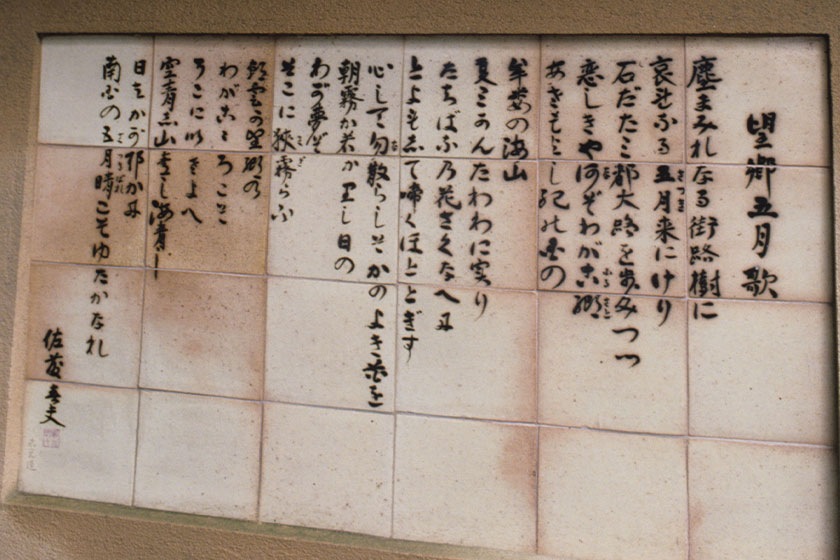 望郷五月歌
塵まみれなる街路樹に
哀れなる五月来にけり
さつき
石だたみ都大路を歩みつつ
恋しきや何ぞわが古郷
ふるさと
あさもよし紀の国の
牟婁の海山
夏みかんたわわに実り
たちばなの花さくなへに
とよもして啼くほととぎす
心して勿散らしそかのよき花を
な
朝霧か若かりし日の
わが夢ぞ
そこに狭霧らふ
さぎ
朝雲か望郷の
わがこころこそ
そこにいさよへ
空青し山青し海青し
日はかがやかに
南国の五月晴こそゆたかなれ
さつきばれ
佐藤春夫